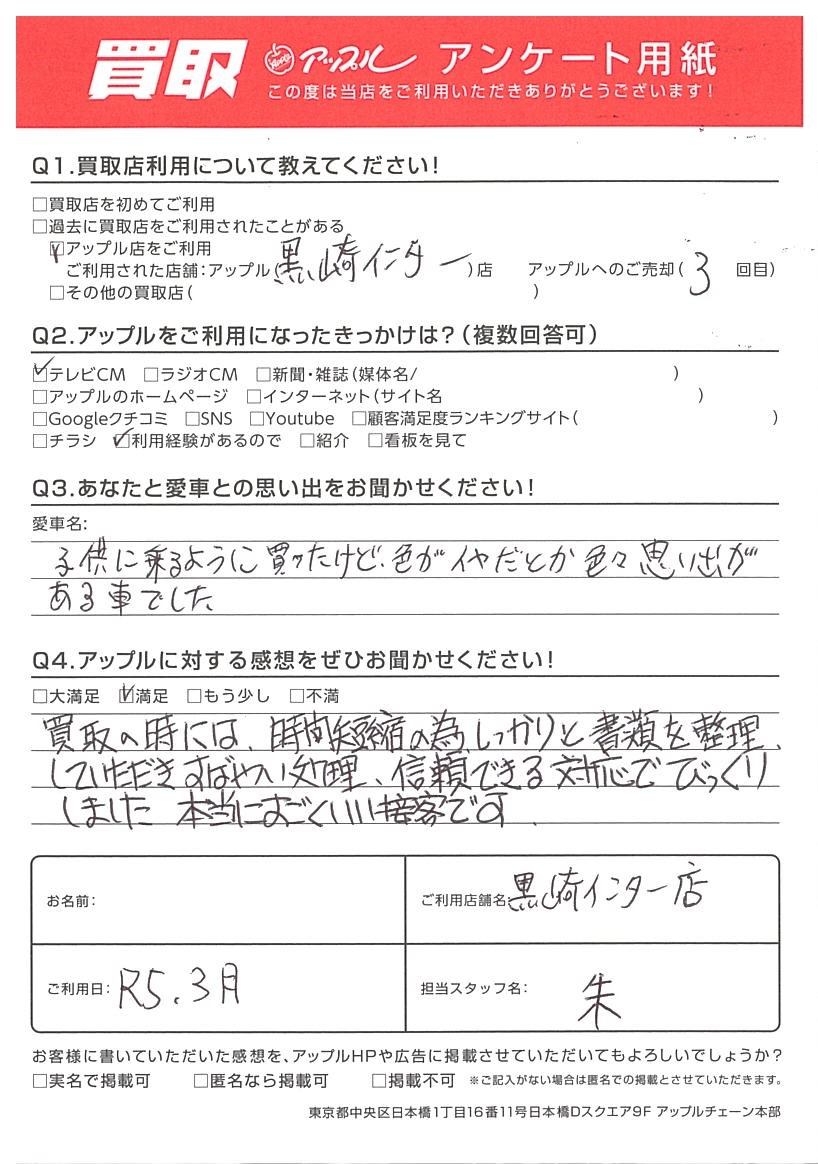 買取 アップル アンケート用紙
この度は当店をご利用いただきありがとうございます!
Q1.買取店利用について教えてください!
□買取店を初めてご利用
□過去に買取店をご利用されたことがある
☑アップル店をご利用
ご利用された店舗:アップル(黒崎インター)店 アップルへのご売却(3 回目)
□その他の買取店( )
Q2.アップルをご利用になったきっかけは?(複数回答可)
☑テレビCM □ラジオCM □新聞・雑誌(媒体名/ )
□アップルのホームページ □インターネット(サイト名 )
□Googleクチコミ □SNS □Youtube □顧客満足度ランキングサイト( )
□チラシ ☑利用経験があるので □紹介 □看板を見て
Q3.あなたと愛車との思い出をお聞かせください!
愛車名:
子供に乗るように買ったけど、色がイヤだとか色々思い出が
ある車でした。
Q4.アップルに対する感想をぜひお聞かせください!
□大満足 ☑満足 □もう少し □不満
買取の時には、時間短縮の為、しっかりと書類を整理、
していただきすばやい処理、信頼できる対応でびっくり
しました 本当にすごくいい接客です.
お名前:
ご利用店舗名:黒崎インター店
ご利用日:R5.3月
担当スタッフ名: 朱
お客様に書いていただいた感想を、アップルHPや広告に掲載させていただいてもよろしいでしょうか?
□実名で掲載可 □匿名なら掲載可 □掲載不可 ※ご記入がない場合は匿名での掲載とさせていただきます。
東京都中央区日本橋1丁目16番11号日本橋Dスクエア9F アップルチェーン本部